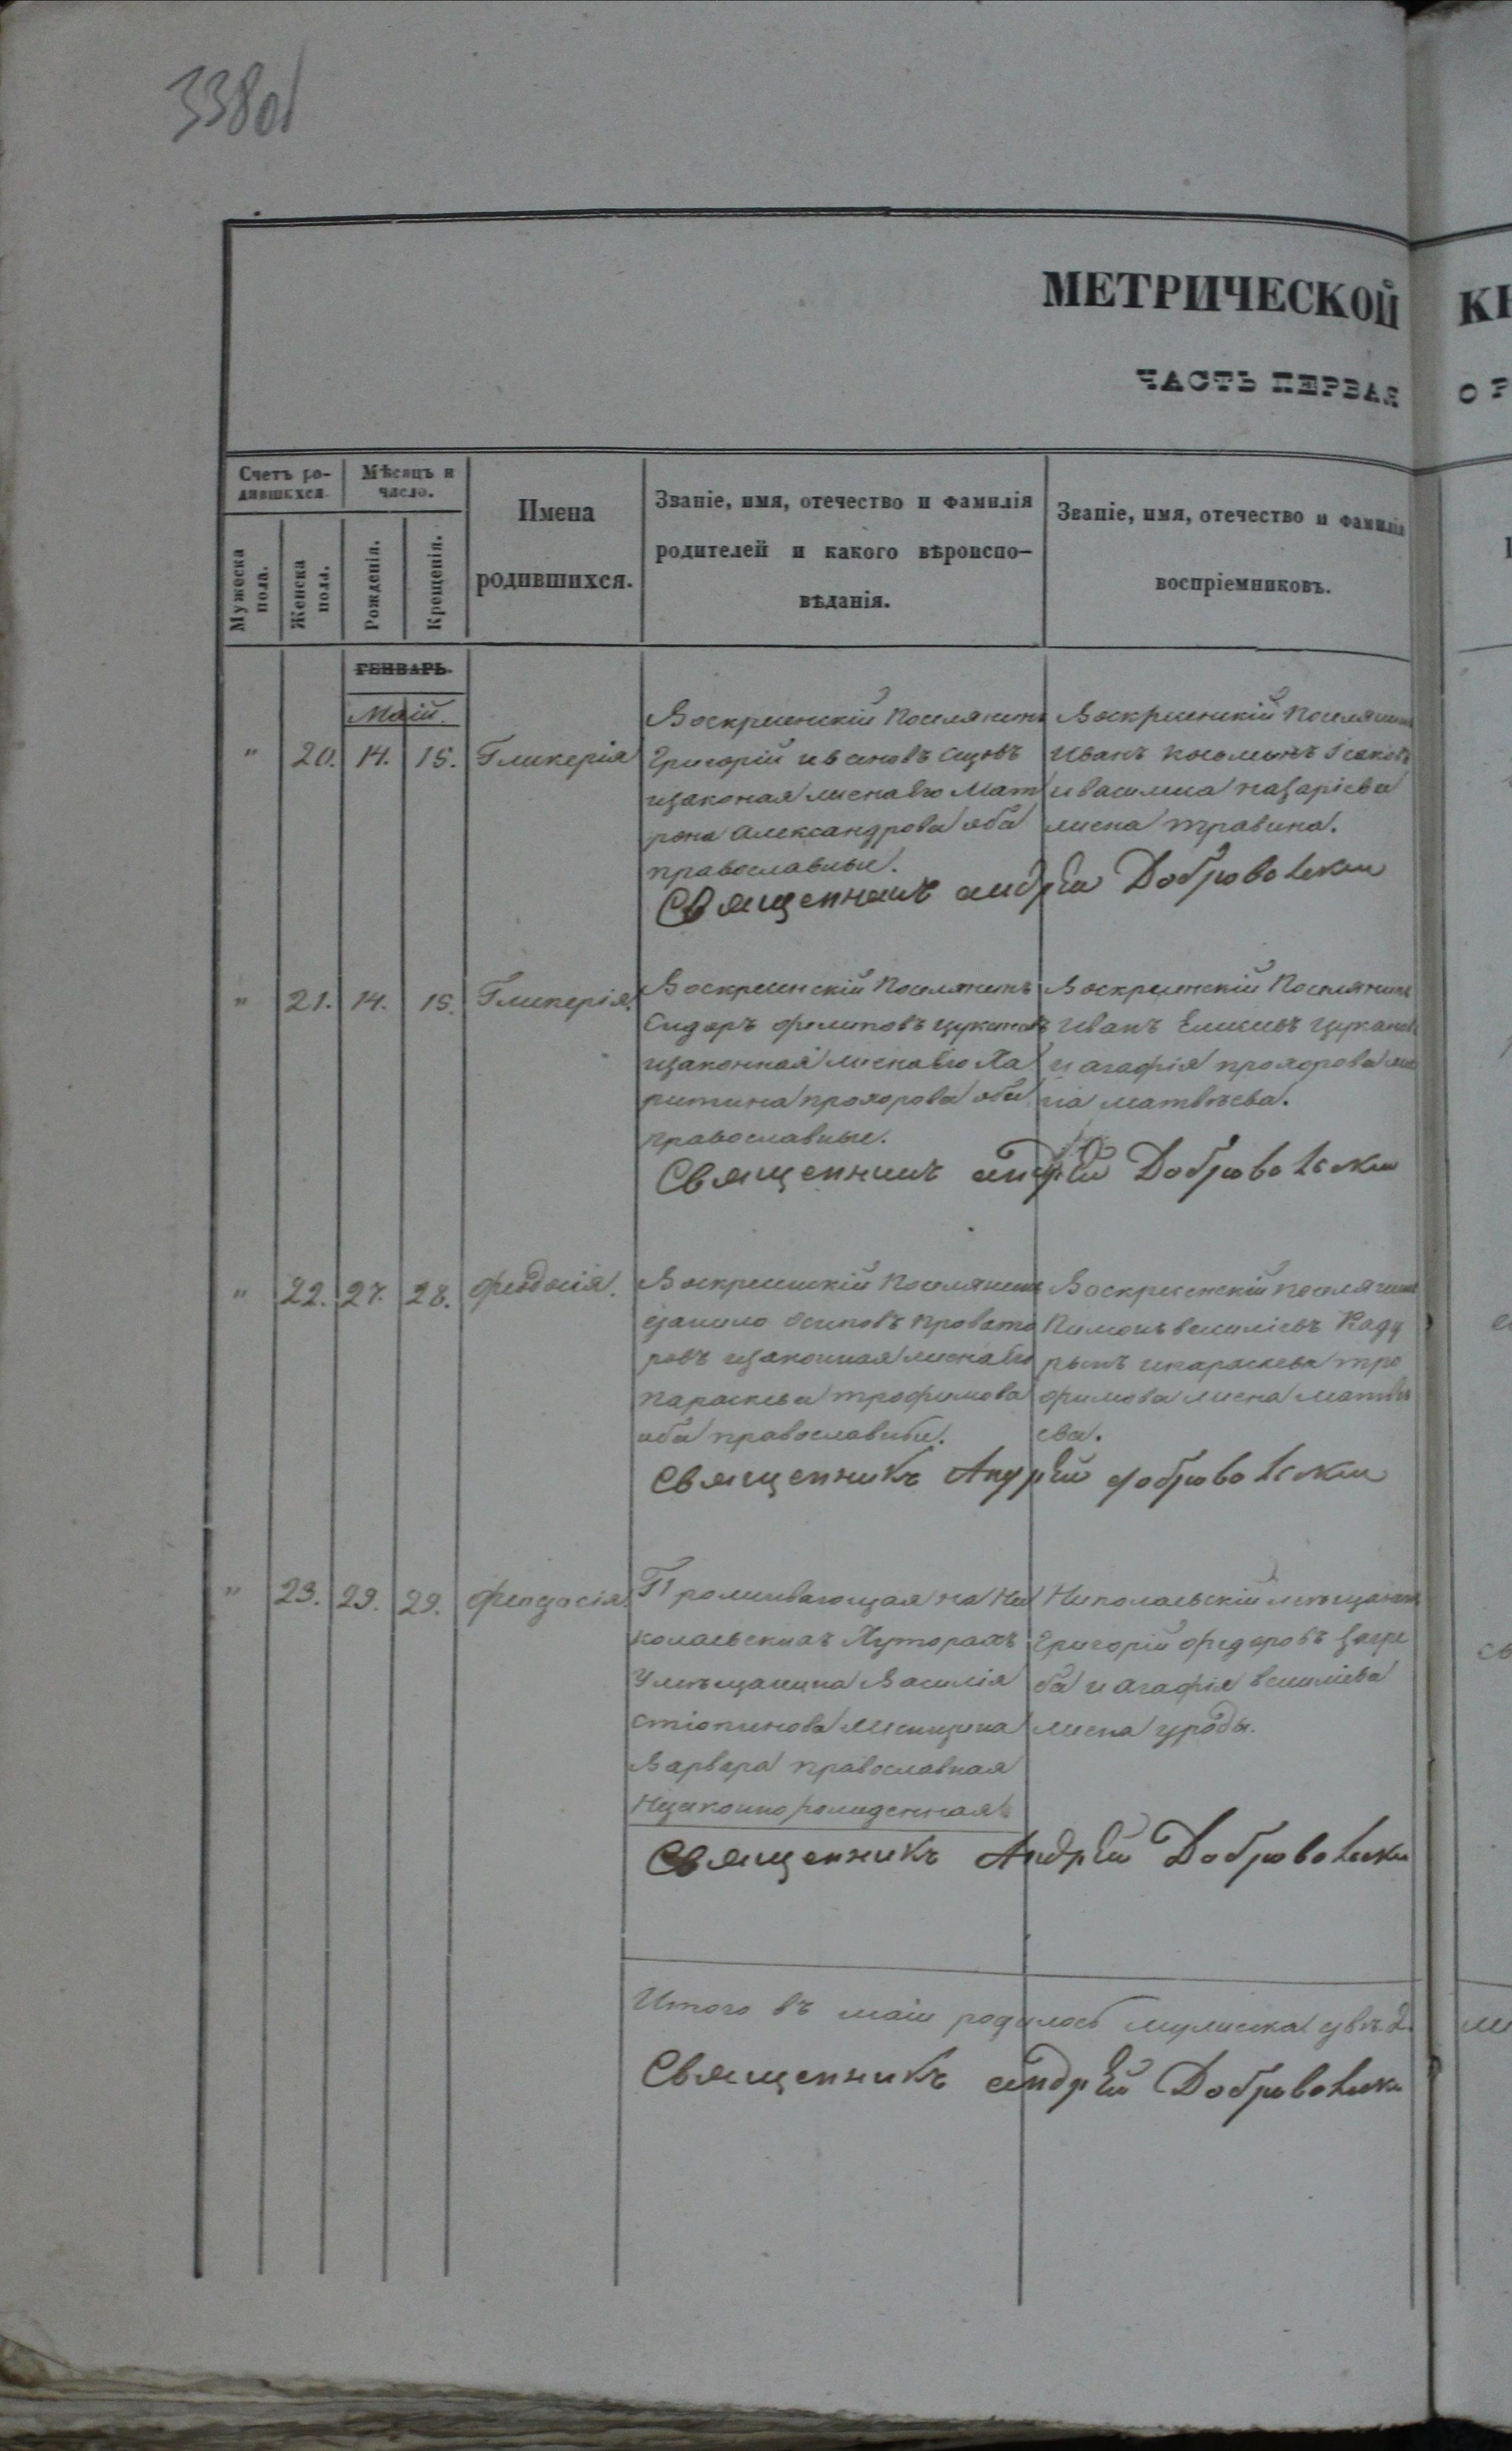 3380
МЕТРИЧЕСКОЙ
ЧАСТЬ ПЕРВАЯ
Счетъ ро-
дившихся.
Мѣсяцъ и
число.
Имена
родившихся.
Званіе, имя, отечество и фамилія
родителей и какого вѣроиспо-
вѣданія.
Званіе, имя, отечество и фамилія
воспріемниковъ.
Мужеска
пола.
Женска
пола.
Рожденія.
Крещенія.
ГЕНВАРЬ.
Маій.
" 20. 14. 15. Гликерія
Воскресенскій Поселянинъ
Григорій Ивановъ
изаконая жена его Мат
рона Александрова оба
православные.
Воскресенскій Поселянинъ
Иванъ Косьминъ Ісаковъ
и василиса назаріева
жена травина.
Священникъ андрей Добровольски
" 21. 14. 15. Гликерія.
Воскресенскій Поселянинъ
Сидоръ филиповъ цукановъ
изаконная жена его Ха
ритина прохорова оба
православные.
Воскресенскій Поселянинъ
Иванъ цукановъ
и агафія прохорова
матвѣева.
Священникъ андрей Добровольски
" 22. 27. 28. феодосія.
Воскресенскій Поселянинъ
данило осиповъ провато
ровъ изаконная жена его
параскева трофимова
оба православные.
Воскресенскій поселянинъ
Пимонъ василіевъ Каду
рынъ ипараскева тро
фимова жена матвѣ
ева.
Священникъ Андрей добровольски
" 23. 29. 29. феодосія.
Проживающая на Ни
колаевскихъ Хуторахъ
У мѣщанина Василія
женщина
Варвара православная
Незаконно рожденная.
Николаевскій мѣщанинъ
Григорій федоровъ загре
ба и агафія василіева
жена уроды.
Священникъ Андрей Добровольски
Итого въ маіи родилось мужеска два. 2.
Священникъ андрей Добровольски